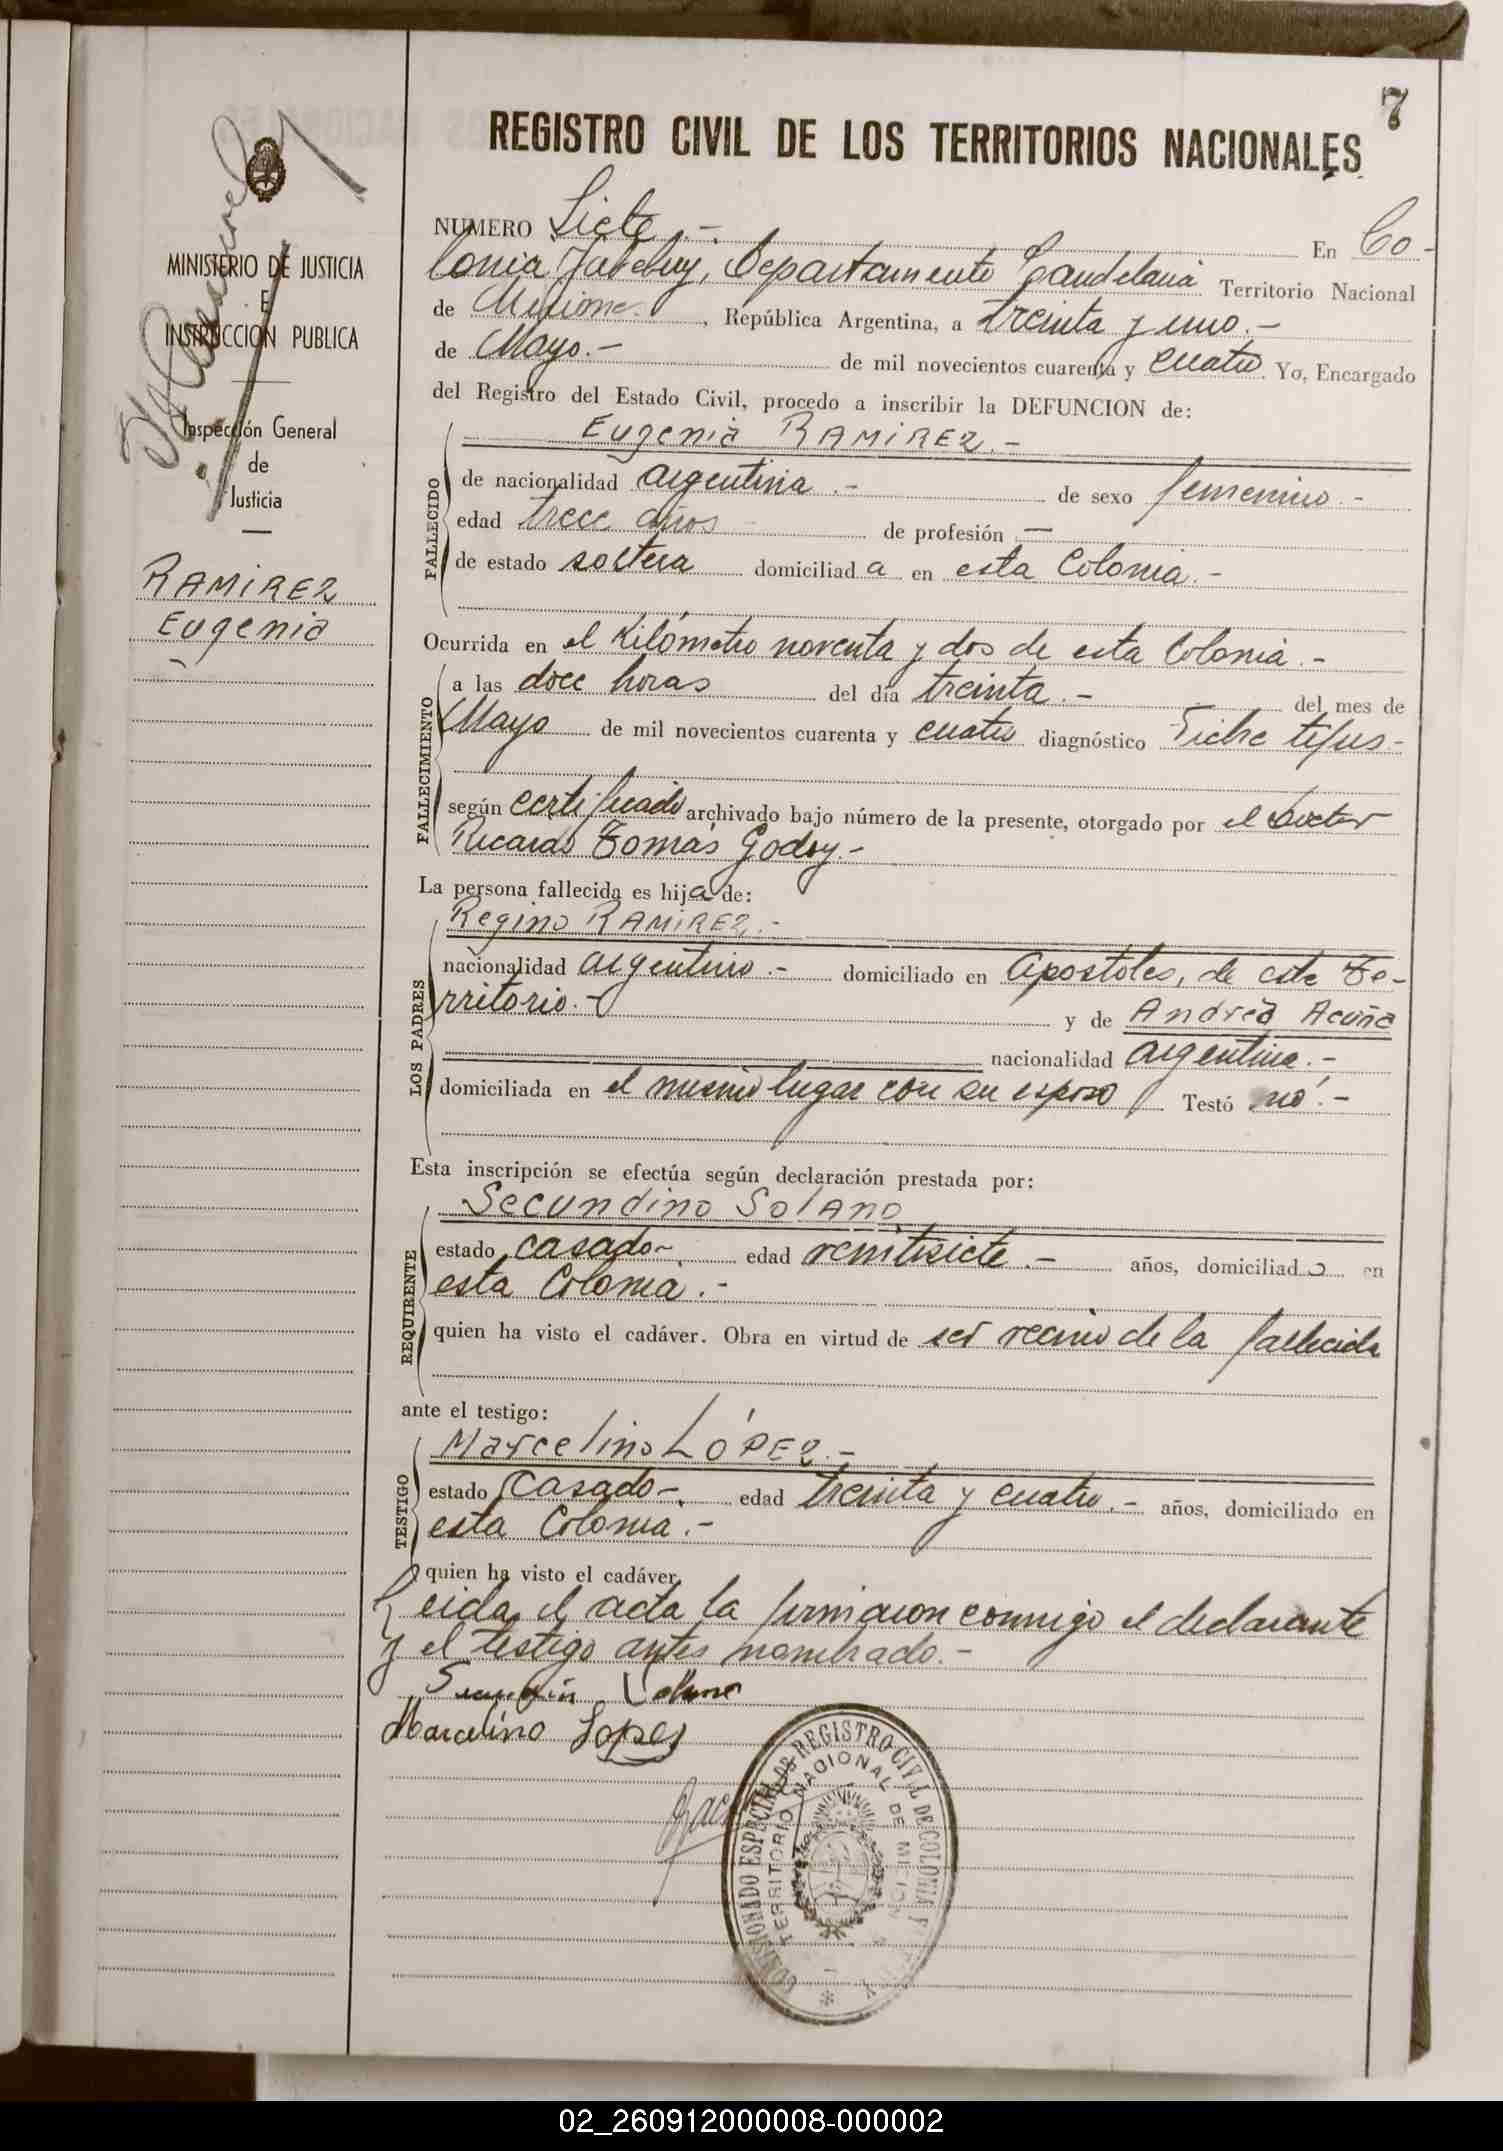 7
REGISTRO CIVIL DE LOS TERRITORIOS NACIONALES
MINISTERIO DE JUSTICIA
E
INSTRUCCION PUBLICA
Inspección General
de
Justicia
RAMIREZ
Eugenia
NUMERO Siete.- En Co-
lonia Yabebuy, Departamento Candelaria Territorio Nacional
de Misiones, República Argentina, a treinta y uno.-
de Mayo.- de mil novecientos cuarenta y cuatro Yo, Encargado
del Registro del Estado Civil, procedo a inscribir la DEFUNCION de:
Eugenia RAMIREZ.-
FALLECIDO
de nacionalidad argentina.- de sexo femenino.-
edad trece años de profesión —
de estado soltera domiciliada en esta Colonia.-
Ocurrida en el Kilómetro noventa y dos de esta Colonia.-
FALLECIMIENTO
a las doce horas del día treinta.- del mes de
Mayo de mil novecientos cuarenta y cuatro diagnóstico Fiebre tifus.-
según certificado archivado bajo número de la presente, otorgado por el Doctor
Ricardo Tomás Godoy.-
La persona fallecida es hija de:
LOS PADRES
Regino RAMIREZ.-
nacionalidad argentino.- domiciliado en Apostoles, de este Te-
rritorio.- y de Andrea Acuña
nacionalidad argentina.-
domiciliada en el mismo lugar con su esposo Testó nó.-
Esta inscripción se efectúa según declaración prestada por:
REQUIRENTE
Secundino Solano
estado casado- edad veintisiete.- años, domiciliado en
esta Colonia.-
quien ha visto el cadáver. Obra en virtud de ser vecino de la fallecida
ante el testigo:
TESTIGO
Marcelino LÓPEZ.-
estado Casado-. edad treinta y cuatro.- años, domiciliado en
esta Colonia.-
quien ha visto el cadáver.
Leida el acta la firmaron conmigo el declarante
y el testigo antes nombrado.-
Marcelino Lopes
COMISIONADO ESPECIAL DE REGISTRO CIVIL DE COLONIA
TERRITORIO NACIONAL DE MICION
02_260912000008-000002